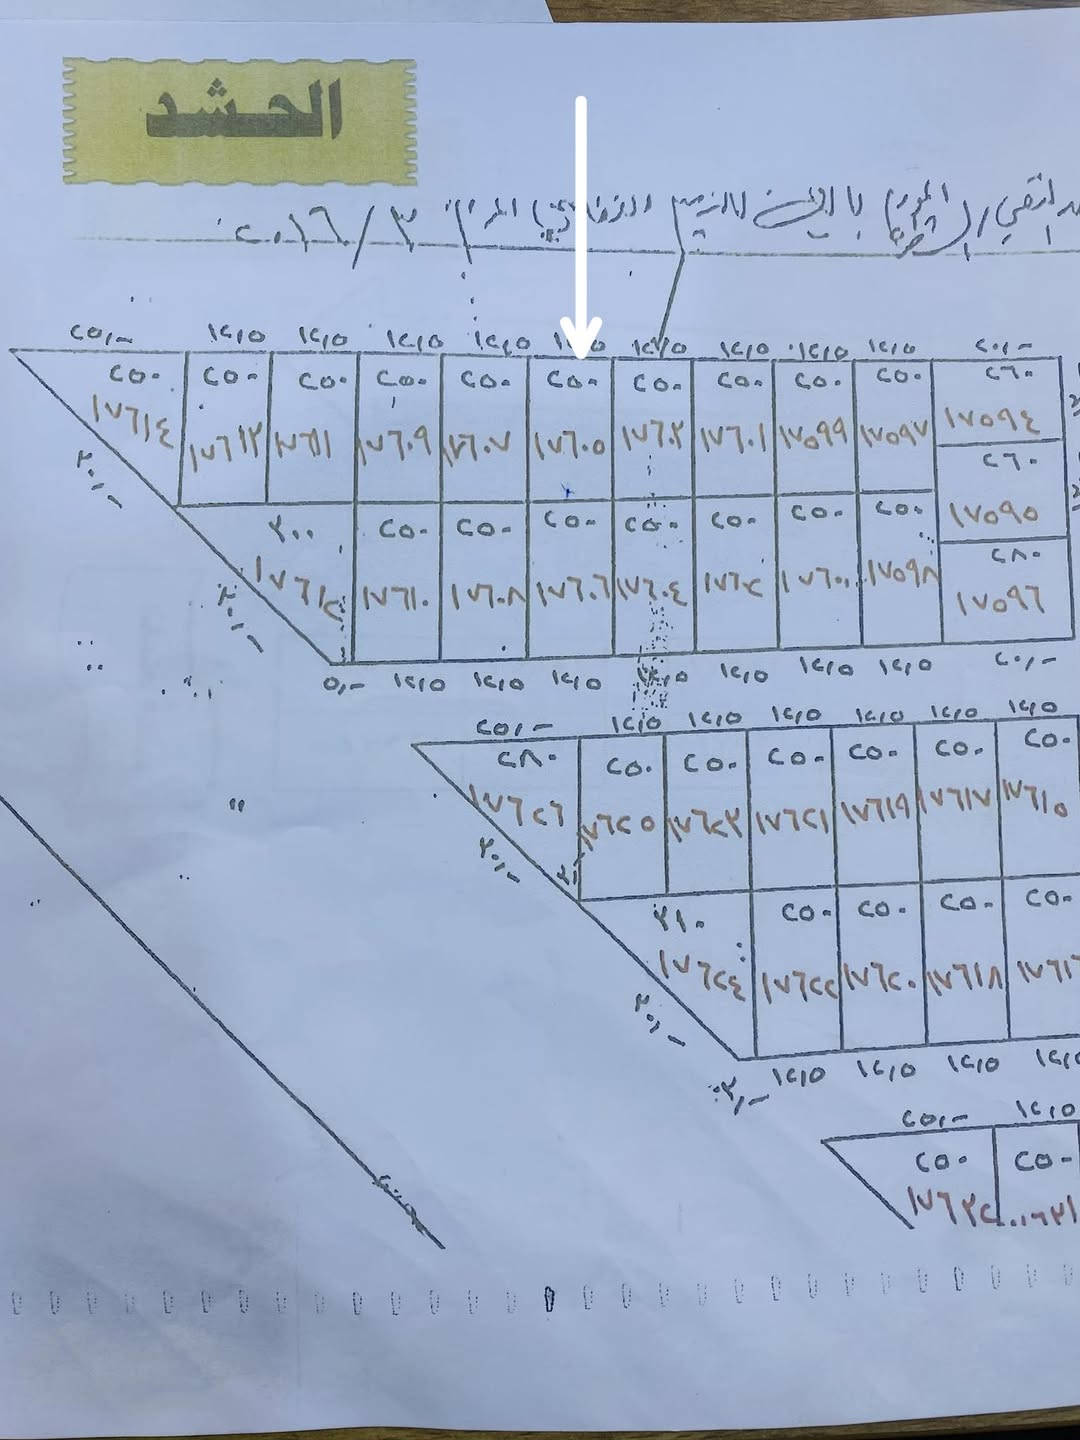 الحشد
٢٠١٦/٣
٢٥,- ١٢,٥ ١٢,٥ ١٢,٥ ١٢,٥ ١٢,٥ ١٢,٥ ١٢,٥ ١٢,٥ ٢٠,-
٢٥٠ ٢٥٠ ٢٥٠ ٢٥٠ ٢٥٠ ٢٥٠ ٢٥٠ ٢٥٠ ٢٥٠ ٢٥٠ ٢٦٠
١٧٦١٤ ١٧٦١٣ ١٧٦١١ ١٧٦٠٩ ١٧٦٠٧ ١٧٦٠٥ ١٧٦٠٣ ١٧٦٠١ ١٧٥٩٩ ١٧٥٩٧ ١٧٥٩٤
٢٠,-
٢٦٠
١٧٥٩٥
٣٠٠ ٢٥٠ ٢٥٠ ٢٥٠ ٢٥٠ ٢٥٠ ٢٥٠ ٢٥٠ ٢٨٠
١٧٦١٢ ١٧٦١٠ ١٧٦٠٨ ١٧٦٠٦ ١٧٦٠٤ ١٧٦٠٢ ١٧٦٠٠ ١٧٥٩٨ ١٧٥٩٦
٢٠,-
٥,- ١٢,٥ ١٢,٥ ١٢,٥ ١٢,٥ ١٢,٥ ١٢,٥ ١٢,٥ ٢٠,-
٢٥,- ١٢,٥ ١٢,٥ ١٢,٥ ١٢,٥ ١٢,٥ ١٢,٥
٢٨٠ ٢٥٠ ٢٥٠ ٢٥٠ ٢٥٠ ٢٥٠ ٢٥٠
١٧٦٢٦ ١٧٦٢٥ ١٧٦٢٣ ١٧٦٢١ ١٧٦١٩ ١٧٦١٧ ١٧٦١٥
٢٠,-
٣١٠ ٢٥٠ ٢٥٠ ٢٥٠ ٢٥٠
١٧٦٢٤ ١٧٦٢٢ ١٧٦٢٠ ١٧٦١٨ ١٧٦١٦
٢٠,-
٣,- ١٢,٥ ١٢,٥ ١٢,٥
٢٥,- ١٢,٥
٢٥٠ ٢٥٠
١٧٦٣٢